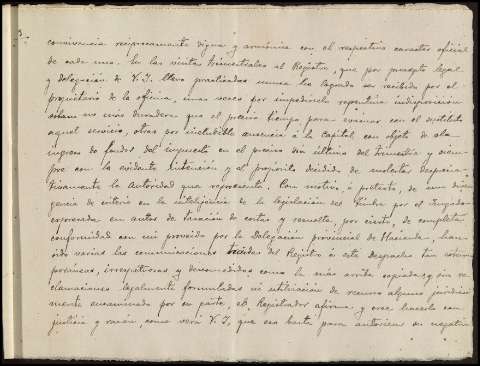 convivencia recíprocamente digna y armónica con el respectivo caracter oficial
de cada uno. En las visitas trimestrales al Registro, que por precepto legal
y delegación de V. I. llevo practicadas nunca he logrado ser recibido por el
propietario de la oficina, unas veces por impedírselo repentina indisposición
no más duradera que el preciso tiempo para evacuar con el sustituto
aquel servicio, otras por ineludible ausencia á la capital con objeto de
ingresar los fondos del impuesto en el preciso dia último del trimestre y siem-
pre con la evidente intención y el propósito decidido de molestar
la autoridad que represento. Con motivo, ó pretexto, de una
de interés en la inteligencia de la legislación del Timbre por el Juzgado
en autos de tasación de costas y resuelta, por cierto, de completa
conformidad con mi proveido por la Delegación provincial de Hacienda, han
sido varias las comunicaciones del Registro á este Despacho tan
irrespetuosas y desmedidas como la más arriba copiada; y sin re-
clamaciones legalmente formuladas ni utilización de recurso alguno jurídica-
mente encaminado por su parte, el Registrador afirma, y cree hacerlo con
justicia y razón, como verá V. I., que eso basta para autorizar su negativa